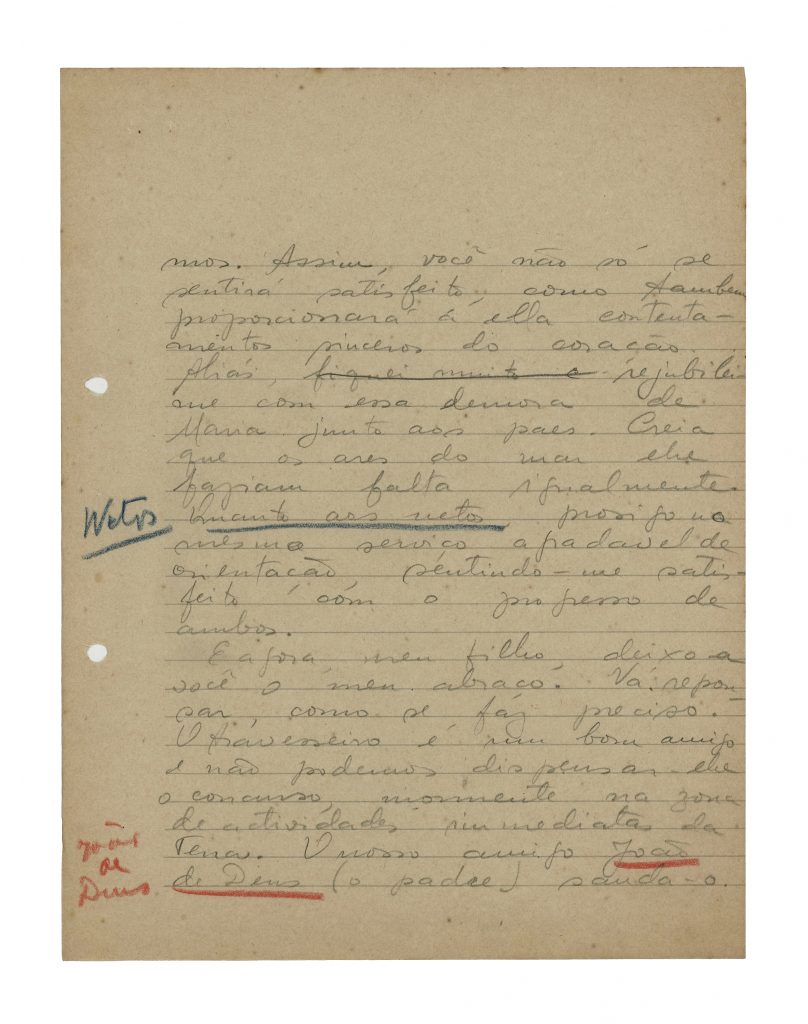 mos. Assim, você não só se
sentirá satisfeito, como tambem
proporcionará á ella contenta-
mentos sinceros do coração.
Aliás, fiquei muito e rejubilei-
me com essa demora de
Maria junto aos paes. Creia
que os ares do mar lhe
faziam falta igualmente.
Netos
Quanto aos netos prosigo no
mesmo serviço agradavel de
orientação sentindo-me satis-
feito com o progresso de
ambos.
E agora, meu filho, deixo a
você o meu abraço. Vá repou-
sar, como se fáz preciso.
O travesseiro é um bom amigo
e não podemos dispensar-lhe
o concurso, mormente na zona
de actividades immediatas da
Terra. O nosso amigo João
de Deus (o padre) saúda-o.
João
de
Deus